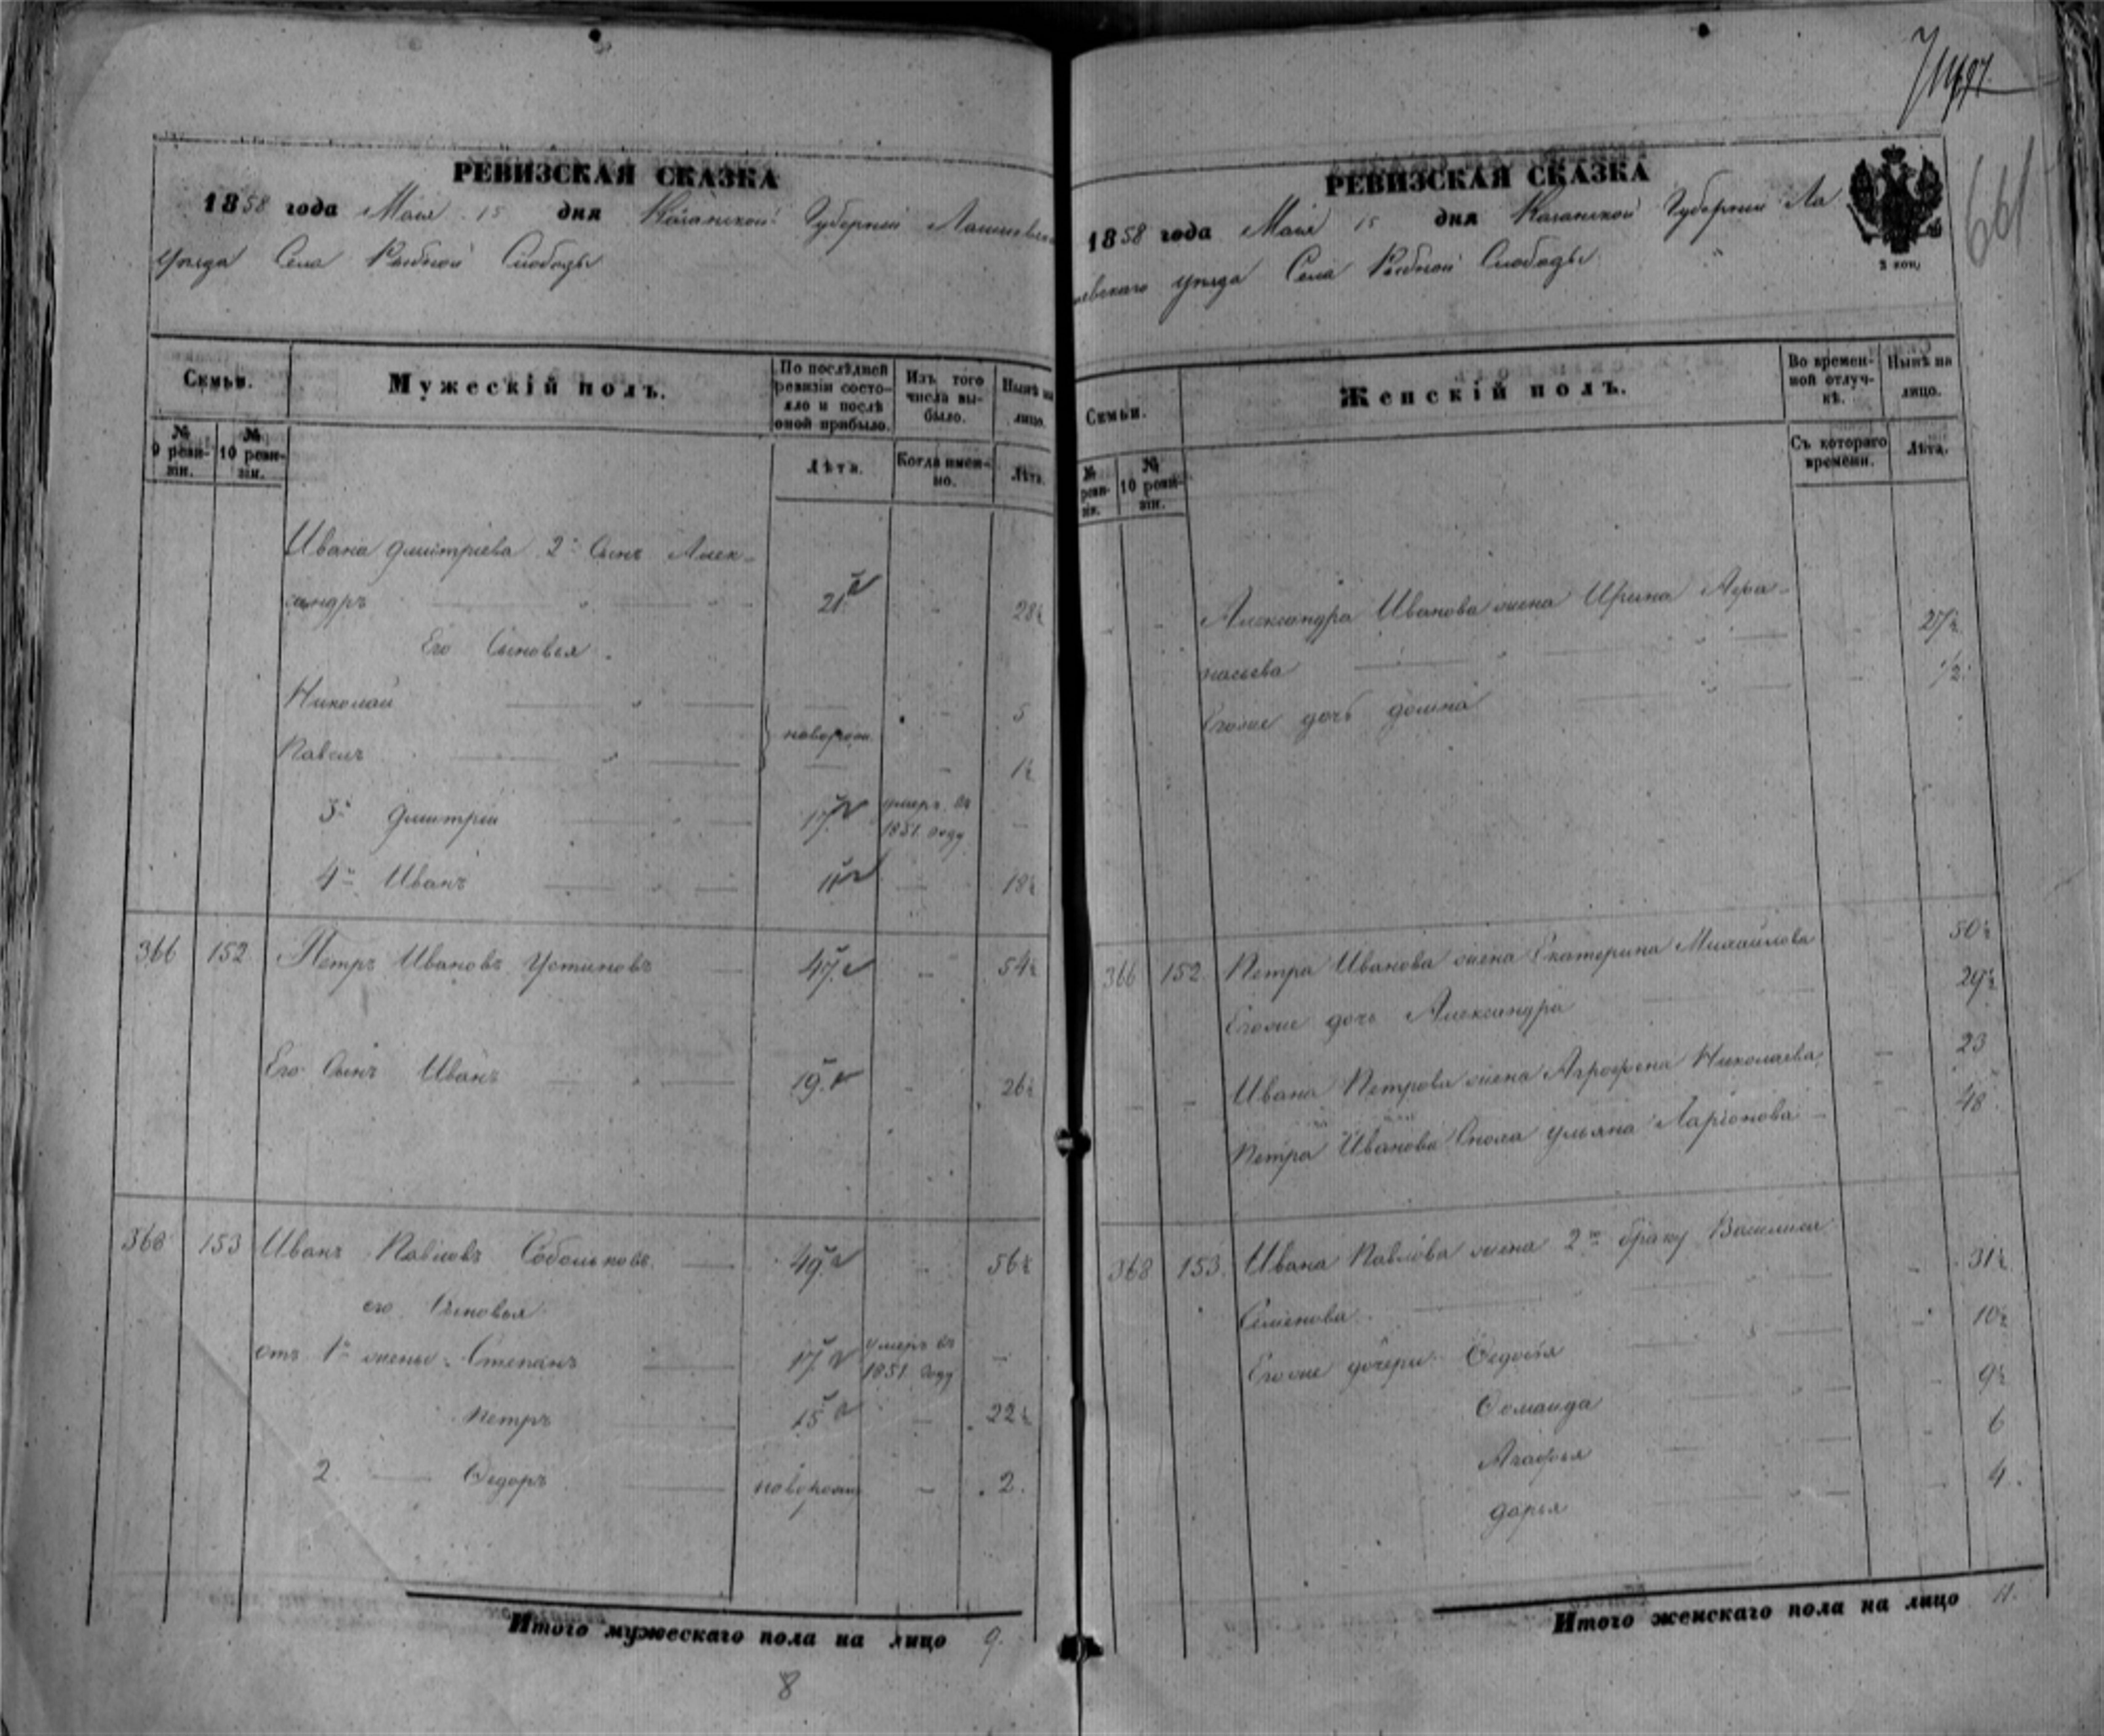 РЕВИЗСКАЯ СКАЗКА
1858 года Мая 15 дня Казанской Губерніи Лаишевска
Уѣзда Села Рыбной Слободы
Семьи.
Мужескій полъ.
По послѣдней ревизіи состояло и послѣ оной прибыло.
Изъ того числа выбыло.
Нынѣ на лицо.
№ 9 ревизіи.
№ 10 ревизіи.
Лѣта.
Когда именно.
Лѣта.
Ивана Дмитріева 2й Сынъ Алек-
сандръ 21 28½
Его Сыновья
Николай 5
новорож.
Павелъ 1½
3й Дмитрій 17 умеръ въ 1851 году
4й Иванъ 11 18½
366 152 Петръ Ивановъ Устиновъ 47 54½
Его Сынъ Иванъ 19 26½
368 153 Иванъ Павловъ Собольковъ 49 56½
его Сыновья
отъ 1й жены Степанъ 17 умеръ въ 1851 году
Петръ 15 22½
2 Ѳедоръ новорожд 2.
Итого мужескаго пола на лицо 9.
8
661
РЕВИЗСКАЯ СКАЗКА
1858 года Мая 15 дня Казанской Губерніи Ла
ишевскаго уѣзда Села Рыбной Слободы
3 коп.
Семьи.
Женскій полъ.
Во временной отлучкѣ.
Нынѣ на лицо.
№ реви- зіи.
№ 10 ревизіи.
Съ котораго времени.
Лѣта.
Александра Иванова жена Ирина Афа-
насьева 27½
Егоже дочь Домна ½
366 152. Петра Иванова жена Екатерина Михайлова 50½
Егоже дочь Александра 29½
Ивана Петрова жена Агрофена Николаева 23
Петра Иванова Сноха Ульяна Ларіонова 48
368 153. Ивана Павлова жена 2го браку Василиса
Семенова 31½
Егоже дочери Ѳедосья 10½
9½
Агафья 6
Дарья 4.
Итого женскаго пола на лицо 11.